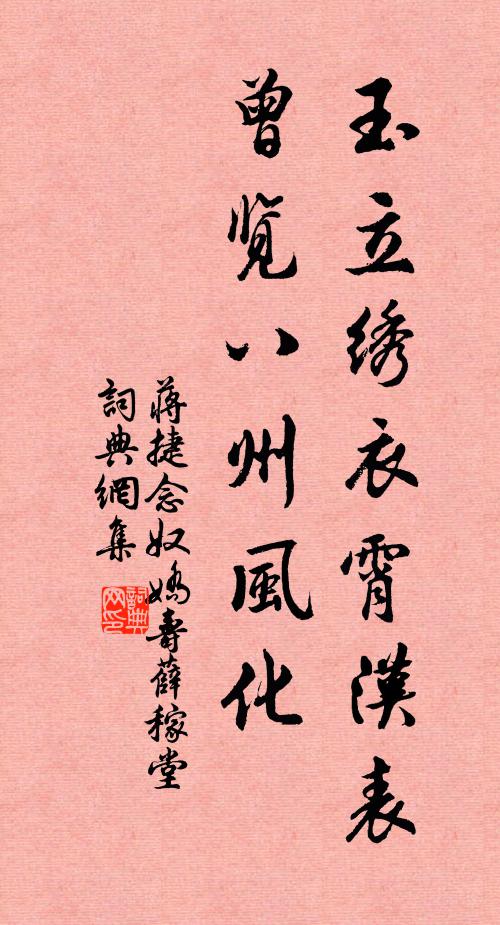 玉立绣衣霄漢表
曾览八州風化
蒋捷念奴嬌壽薛稼堂
詞典網集
詞典网印